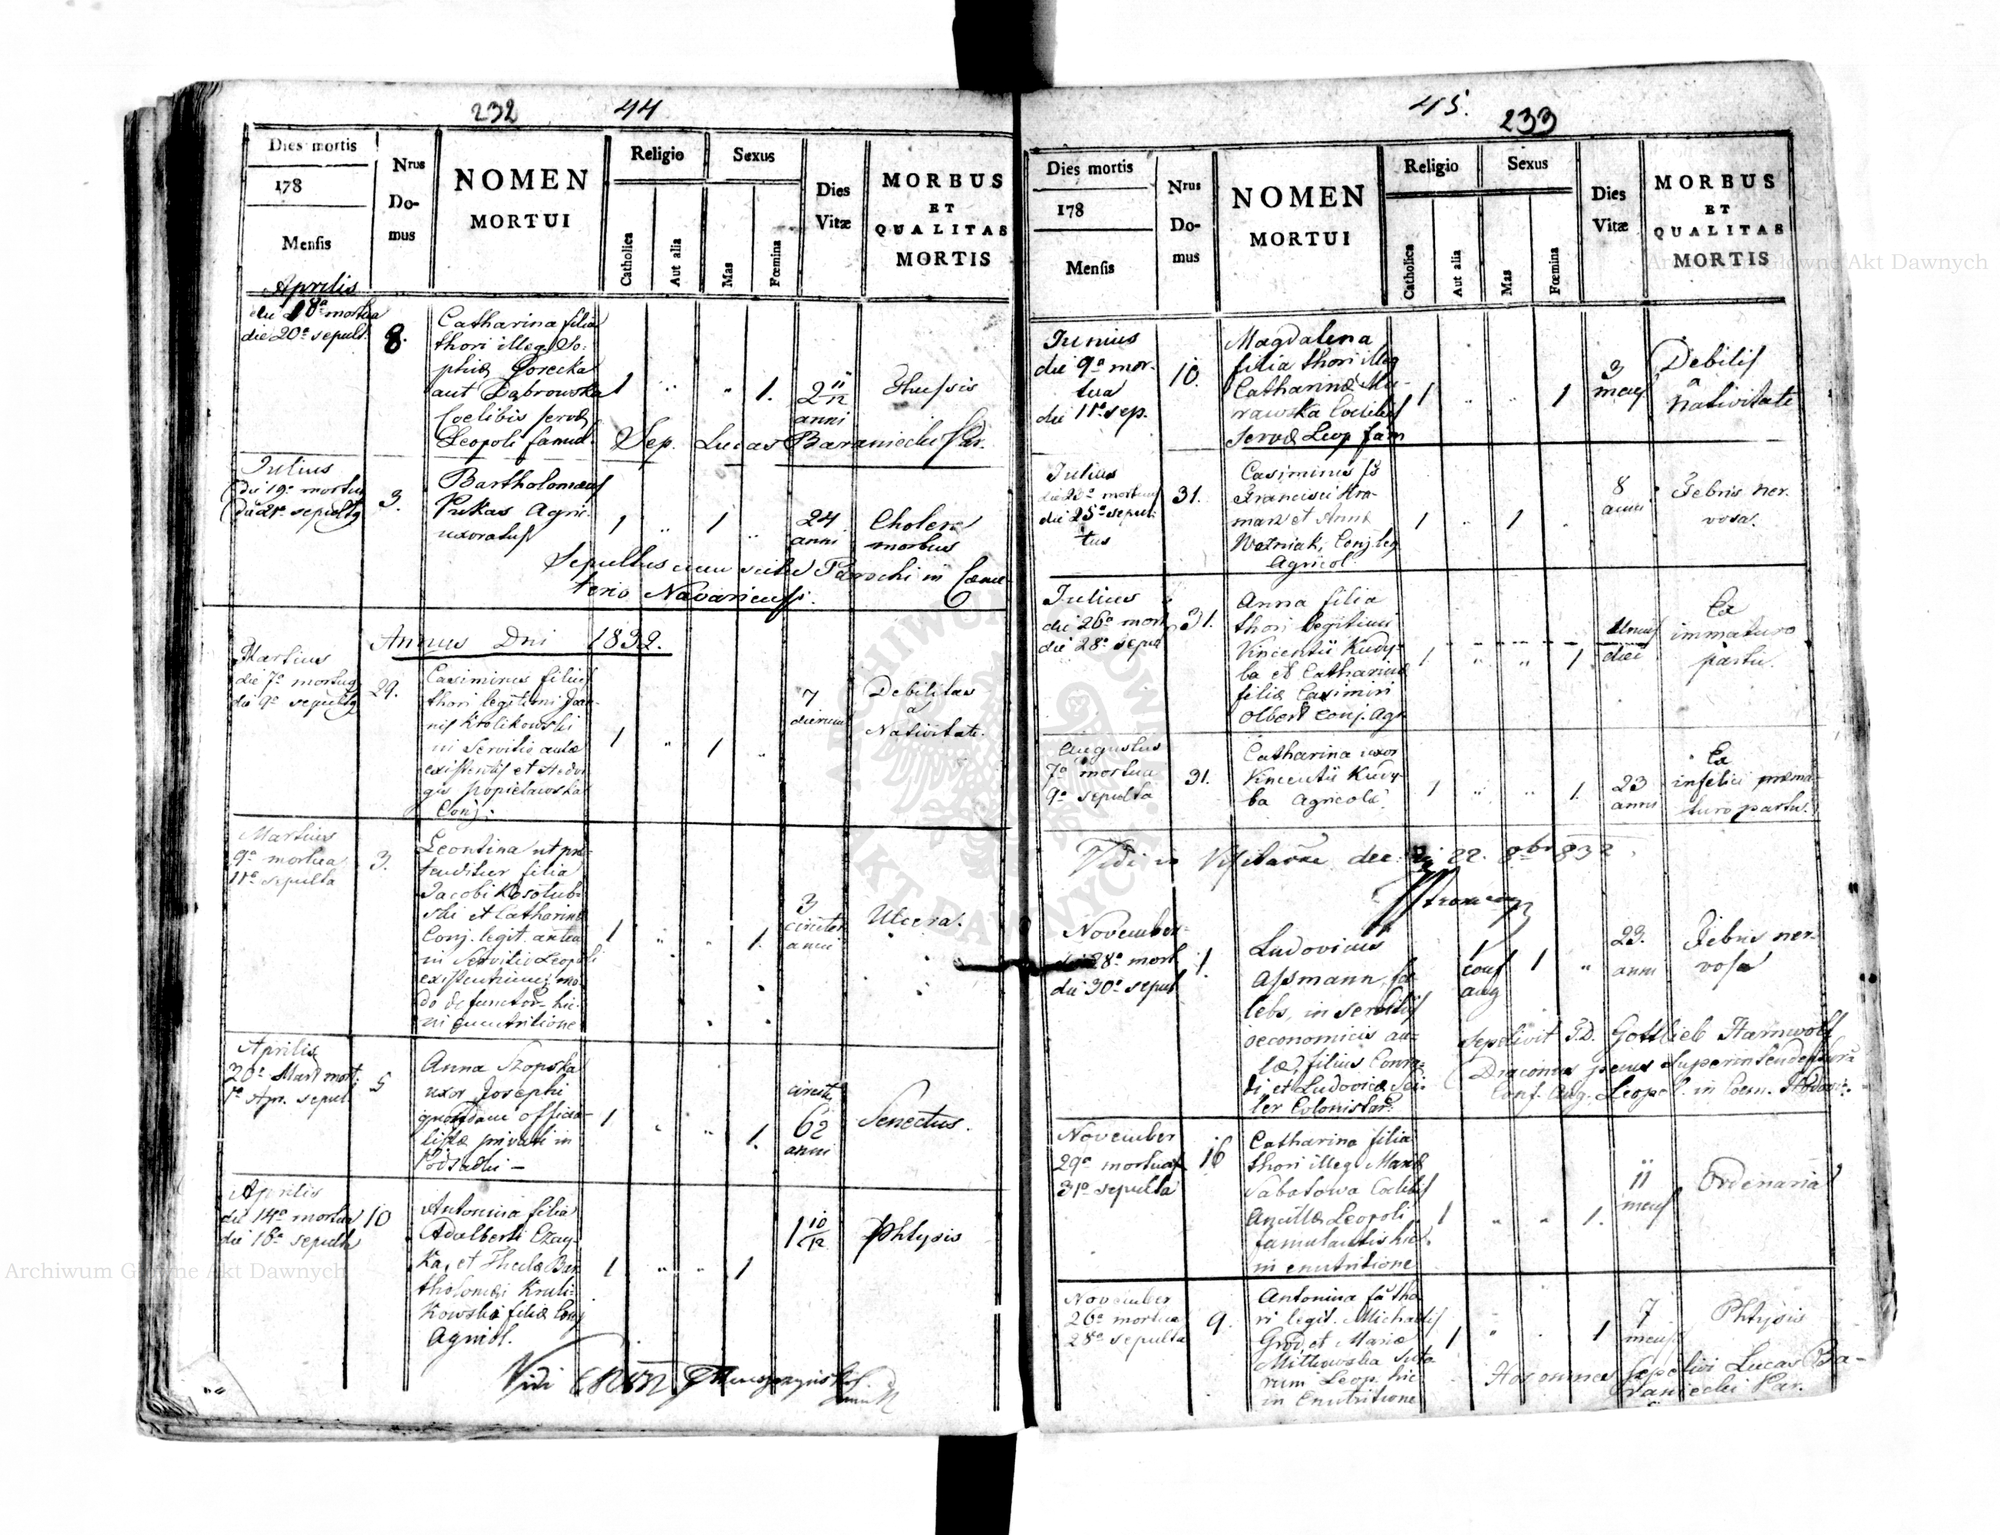 232 44
Dies mortis
178
Mensis
Nrus
Do-
mus
NOMEN
MORTUI
Religio
Catholica
Aut alia
Sexus
Mas
Fœmina
Dies
Vitæ
MORBUS
ET
QUALITAS
MORTIS
Aprilis
die 18ª mortua
die 20ª sepult.
8.
Catharina filia
thori illeg. So-
phiæ Gorecka
aut Dąbrowska
Coelibis servæ
Leopoli famul.
1 " " 1.
2 11/12
anni
Thussis
Sep. Lucas Baraniecki Par.
Julius
die 19ª mortuus
die 21ª sepultq
3.
Bartholomæus
Pukas Agric.
uxoratus
1 " 1 "
24
anni
Cholera
morbus
Sepultus cum scitu Parochi in Cœme-
terio Navariensi.
Annus Dni 1832.
Martius
die 7ª mortuq
die 9ª sepultq
29.
Casimirus filius
thori legitimi Joan-
nis Krolikowski
in servitio aulæ
existentis et Hedvi-
gis Popielawska
Conj.
1 " 1 "
7
dierum
Debilitas
a
Nativitate.
Martius
9ª mortua
11ª sepulta
3.
Leontina ut præ-
tenditur filia
Jacobi
ski et Catharinæ
Conj. legit. antea
in Servitio Leopoli
existentium, mo-
do defunctor. hic
in enutritione
1 " " 1.
3
circiter
anni
Ulcera.
Aprilis
30ª Mart mort.
1ª Apr. sepul.
5
Anna Szopska
uxor Josephi
quondam officia-
listæ privati in
Podsadki –
1 " " 1.
circiter
62
anni
Senectus.
Aprilis
die 14ª mortua
die 16ª sepulta
10
Antonina filia
Adalberti Czay-
ka, et Theclæ Bar-
tholomæi Kruli-
kowski filiæ Conj
Agricol.
1 " " 1
1 10/12
Phtysis
Vidi
45. 233
Dies mortis
178
Mensis
Nrus
Do-
mus
NOMEN
MORTUI
Religio
Catholica
Aut alia
Sexus
Mas
Fœmina
Dies
Vitæ
MORBUS
ET
QUALITAS
MORTIS
Junius
die 9ª mor-
tua
die 11ª sep.
10.
Magdalena
filia thori illeg
Catharinæ Mu-
rawska Coelibis
Servæ Leop fam
1 " " 1
3
mens
Debilis
a
Nativitate
Julius
die 23ª mortuus
die 25ª sepul-
tus
31.
Casimirus fs
Francisci Kra-
marz et Annæ
Wozniak, Conj. leg
Agricol.
1 " 1 "
8
anni
Febris ner-
vosa.
Julius
die 26ª mort
die 28ª sepul
31.
Anna filia
thori legitimi
Vincentii Kudy-
ba et Catharinæ
filiæ Casimiri
Olbert conj. Agr.
1 " " 1
Unius
diei
Ex
immaturo
partu.
Augustus
7ª mortua
9ª sepulta
31.
Catharina uxor
Vincentii Kudy-
ba Agricolæ.
1 " " 1.
23
anni
Ex
infelici præma-
turo partu.
Vidi in Visitatne dec. 22. 8br 832.
November
die 28ª mort
die 30ª sepul
1.
Ludovicus
Assmann, cæ-
lebs, in servitiis
oeconomicis au-
læ, filius Conra-
di et Ludovicæ Sei-
ler Colonistar.
1
conf
aug
1 "
23.
anni
Febris ner-
vosa
Sepelivit T.D. Gottlieb
Diaconus penes Superintendenturâ
Conf. Aug. Leopol. in Coem.
November
29ª mortua
31ª sepulta
16
Catharina filia
thori illeg. Mariæ
Sabatowa Coelibis
Ancillæ Leopoli
famulantis hic
in enutritione
1 " " 1.
11
mens
Ordenaria
November
26ª mortua
28ª sepulta
9.
Antonina fa tho-
ri legit. Michaelis
Grod, et Mariæ
Mitkowska suto-
rum Leop. hic
in Enutritione
1 " " 1
7
mens
Phtysis
Hos omnes sepelivi Lucas Ba-
raniecki Par.
Archiwum Główne Akt Dawnych
Archiwum Główne Akt Dawnych
ARCHIWUM GŁÓWNE AKT DAWNYCH